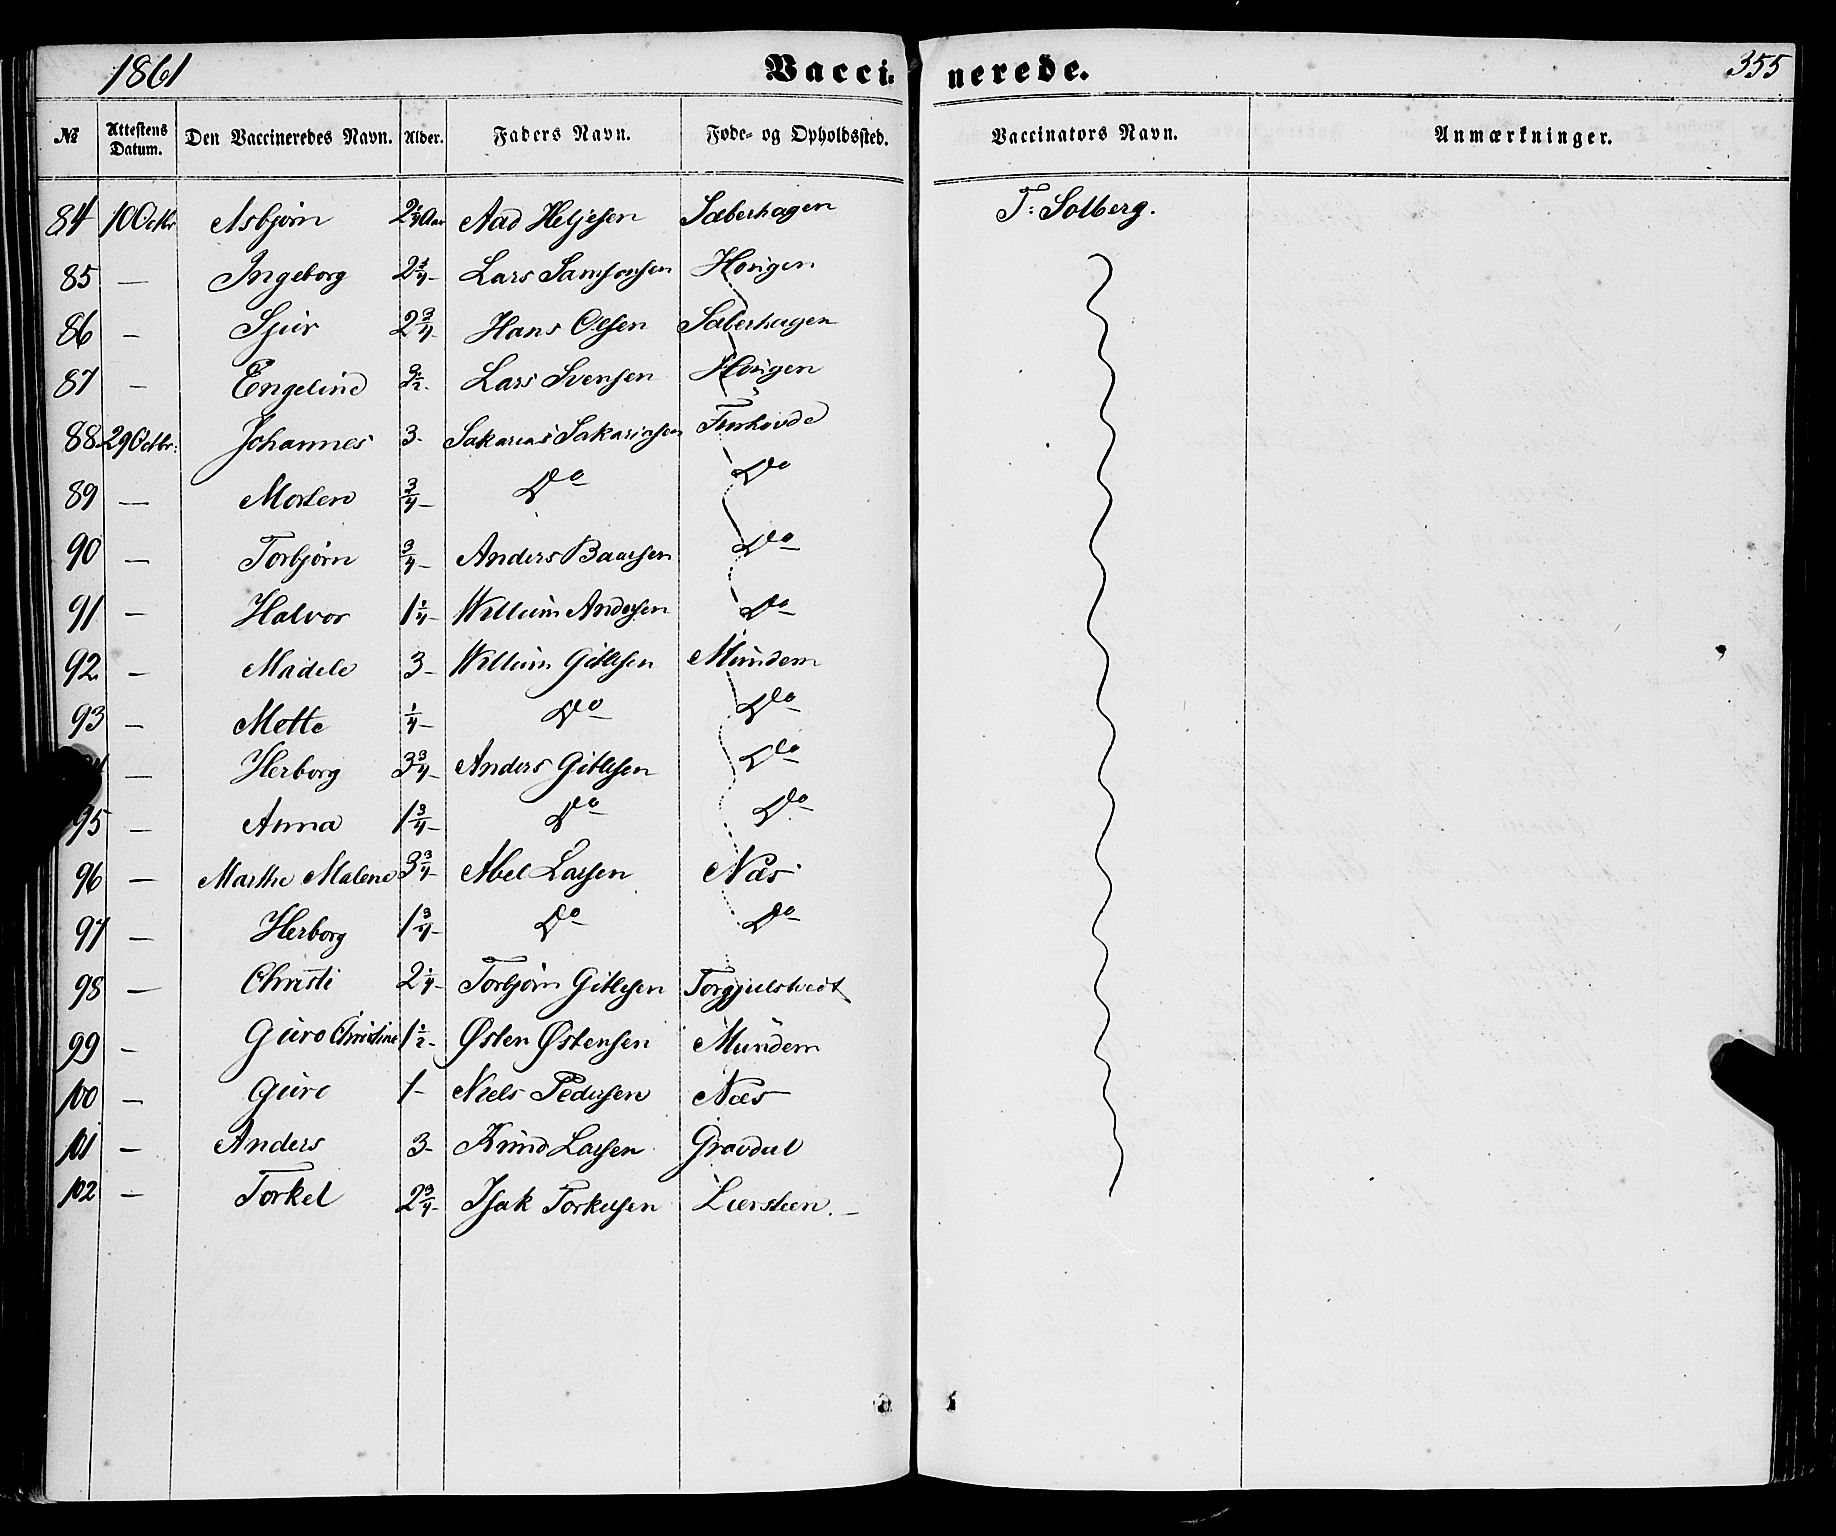 1861 Vaccinerede. 355
№ Attestens Datum. Den Vaccineredes Navn. Alder. Faders Navn. Føde- og Opholdssted. Vaccinators Navn. Anmærkninger.
84 10 Octbr Asbjørn Aad Heljesen Sæberhagen T: Solberg.
85 — Ingeborg 2 1/4 - Lars Samsonsen Hougen
86 — Sjur 2 3/4 - Hans Olsen Sæberhagen
87 — Engeline Lars Svensen Hougen
88 29 Octbr: Johannes 3 - Sakarias Sakariasen
89 — Morten 3/4 - Do Do
90 — Torbjørn 3/4 - Anders Baarsen Do
91 — Halvor 1 1/4 - Willum Andersen Do
92. — Madele 3 - Willum Gitlesen Mundem
93 — Mette 1/4 - Do Do
— Herborg 3 3/4 - Anders Gitlesen Do
95 — Anna 1 3/4 - Do Do
96 — Marthe Malene 3 3/4 - Abel Larsen Næs
97 — Herborg 1 3/4 - Do Do
98 — Christi 2 1/4 - Torbjørn Gitlesen Torgjulstvedt
99 — Guro Christine 1 1/2 - Østen Østensen Mundem
100 — Guro 1 - Niels Pedersen Næs
101 — Anders 3 - Knud Larsen Gravdal
102 — Torkel 2 3/4 - Isak Torkelsen Liersteen. —